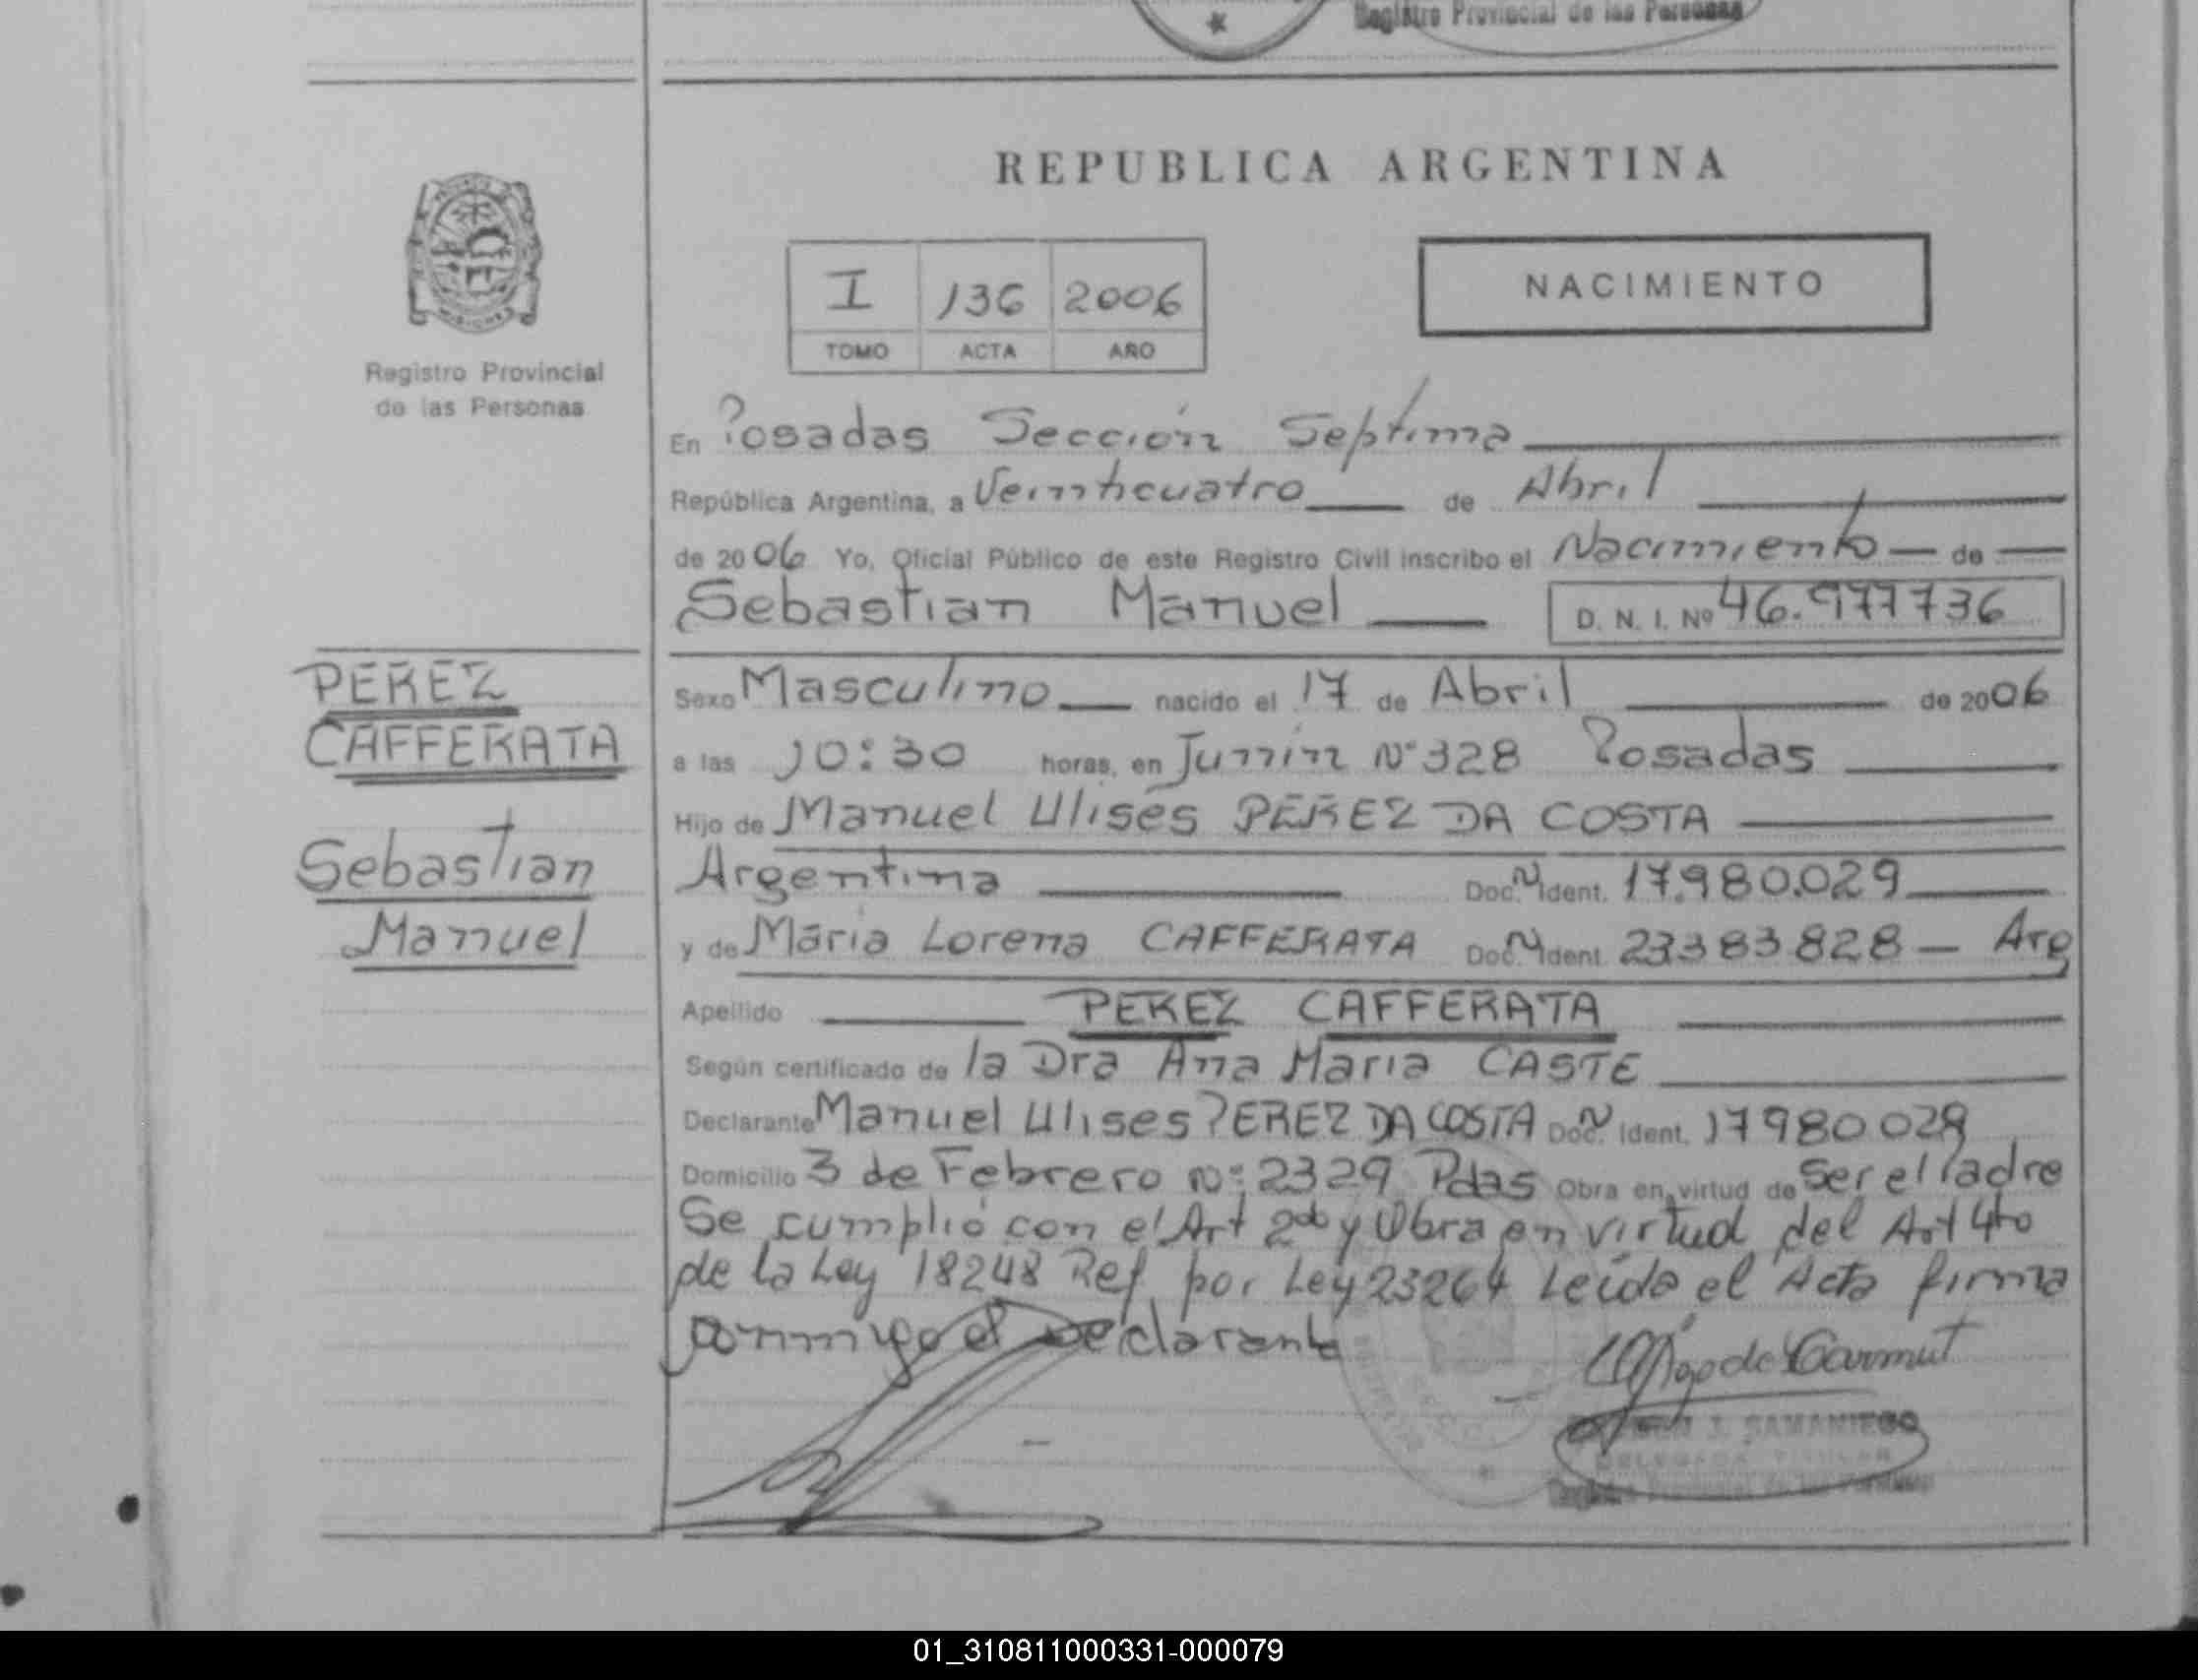 Registro Provincial de las Personas
REPUBLICA ARGENTINA
NACIMIENTO
I 136 2006
TOMO ACTA AÑO
Registro Provincial
de las Personas
En Posadas Sección Septima
República Argentina, a Veinticuatro de Abril
de 2006 Yo, Oficial Público de este Registro Civil inscribo el Nacimiento de
Sebastian Manuel D. N. I. Nº 46.977736
PEREZ
CAFFERATA
Sebastian
Manuel
Sexo Masculino nacido el 17 de Abril de 2006
a las 10:30 horas, en Junín Nº 328 Posadas
Hijo de Manuel Ulises PEREZ DA COSTA
Argentina Doc. N Ident. 17.980.029
y de Maria Lorena CAFFERATA Doc. N Ident. 23383828 - Arg
Apellido PEREZ CAFFERATA
Según certificado de la Dra Ana Maria CASTE
Declarante Manuel Ulises PEREZ DA COSTA Doc. N Ident. 17980029
Domicilio 3 de Febrero Nº 2329 Pdas Obra en virtud de Ser el Padre
Se cumplió con el Art 2do y Obra en virtud del Art 4to
de la Ley 18248 Ref. por Ley 23264 Leida el Acta firma
conmigo el Declarante
de Carmut
J. SAMANIEGO
DELEGADA TITULAR
Registro Provincial de las Personas
01_310811000331-000079